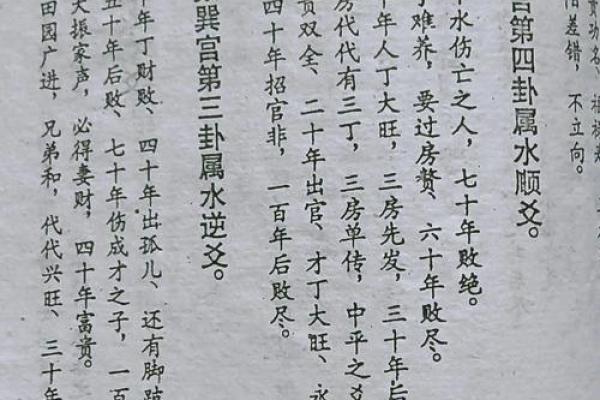 功名、
差错，不立向。
宫第四卦属水顺爻。
水伤亡之人，七十年败绝。
难养，要过房赘、六十年败尽。
年人丁大旺，三房先发，三十年后
房代代有三丁，三房单传，中平之爻
贵双全、二十年出官、才丁大旺、永
四十年招官非，一百年后败尽。
巽宫第三卦属水逆爻。
年丁财败、四十年出孤儿、还有脚跛
五十年后败、七十年伤成才之子，一百
大振家声，必得妻财，四十年富贵。
田园广进，兄弟和，代代兴旺、三十年